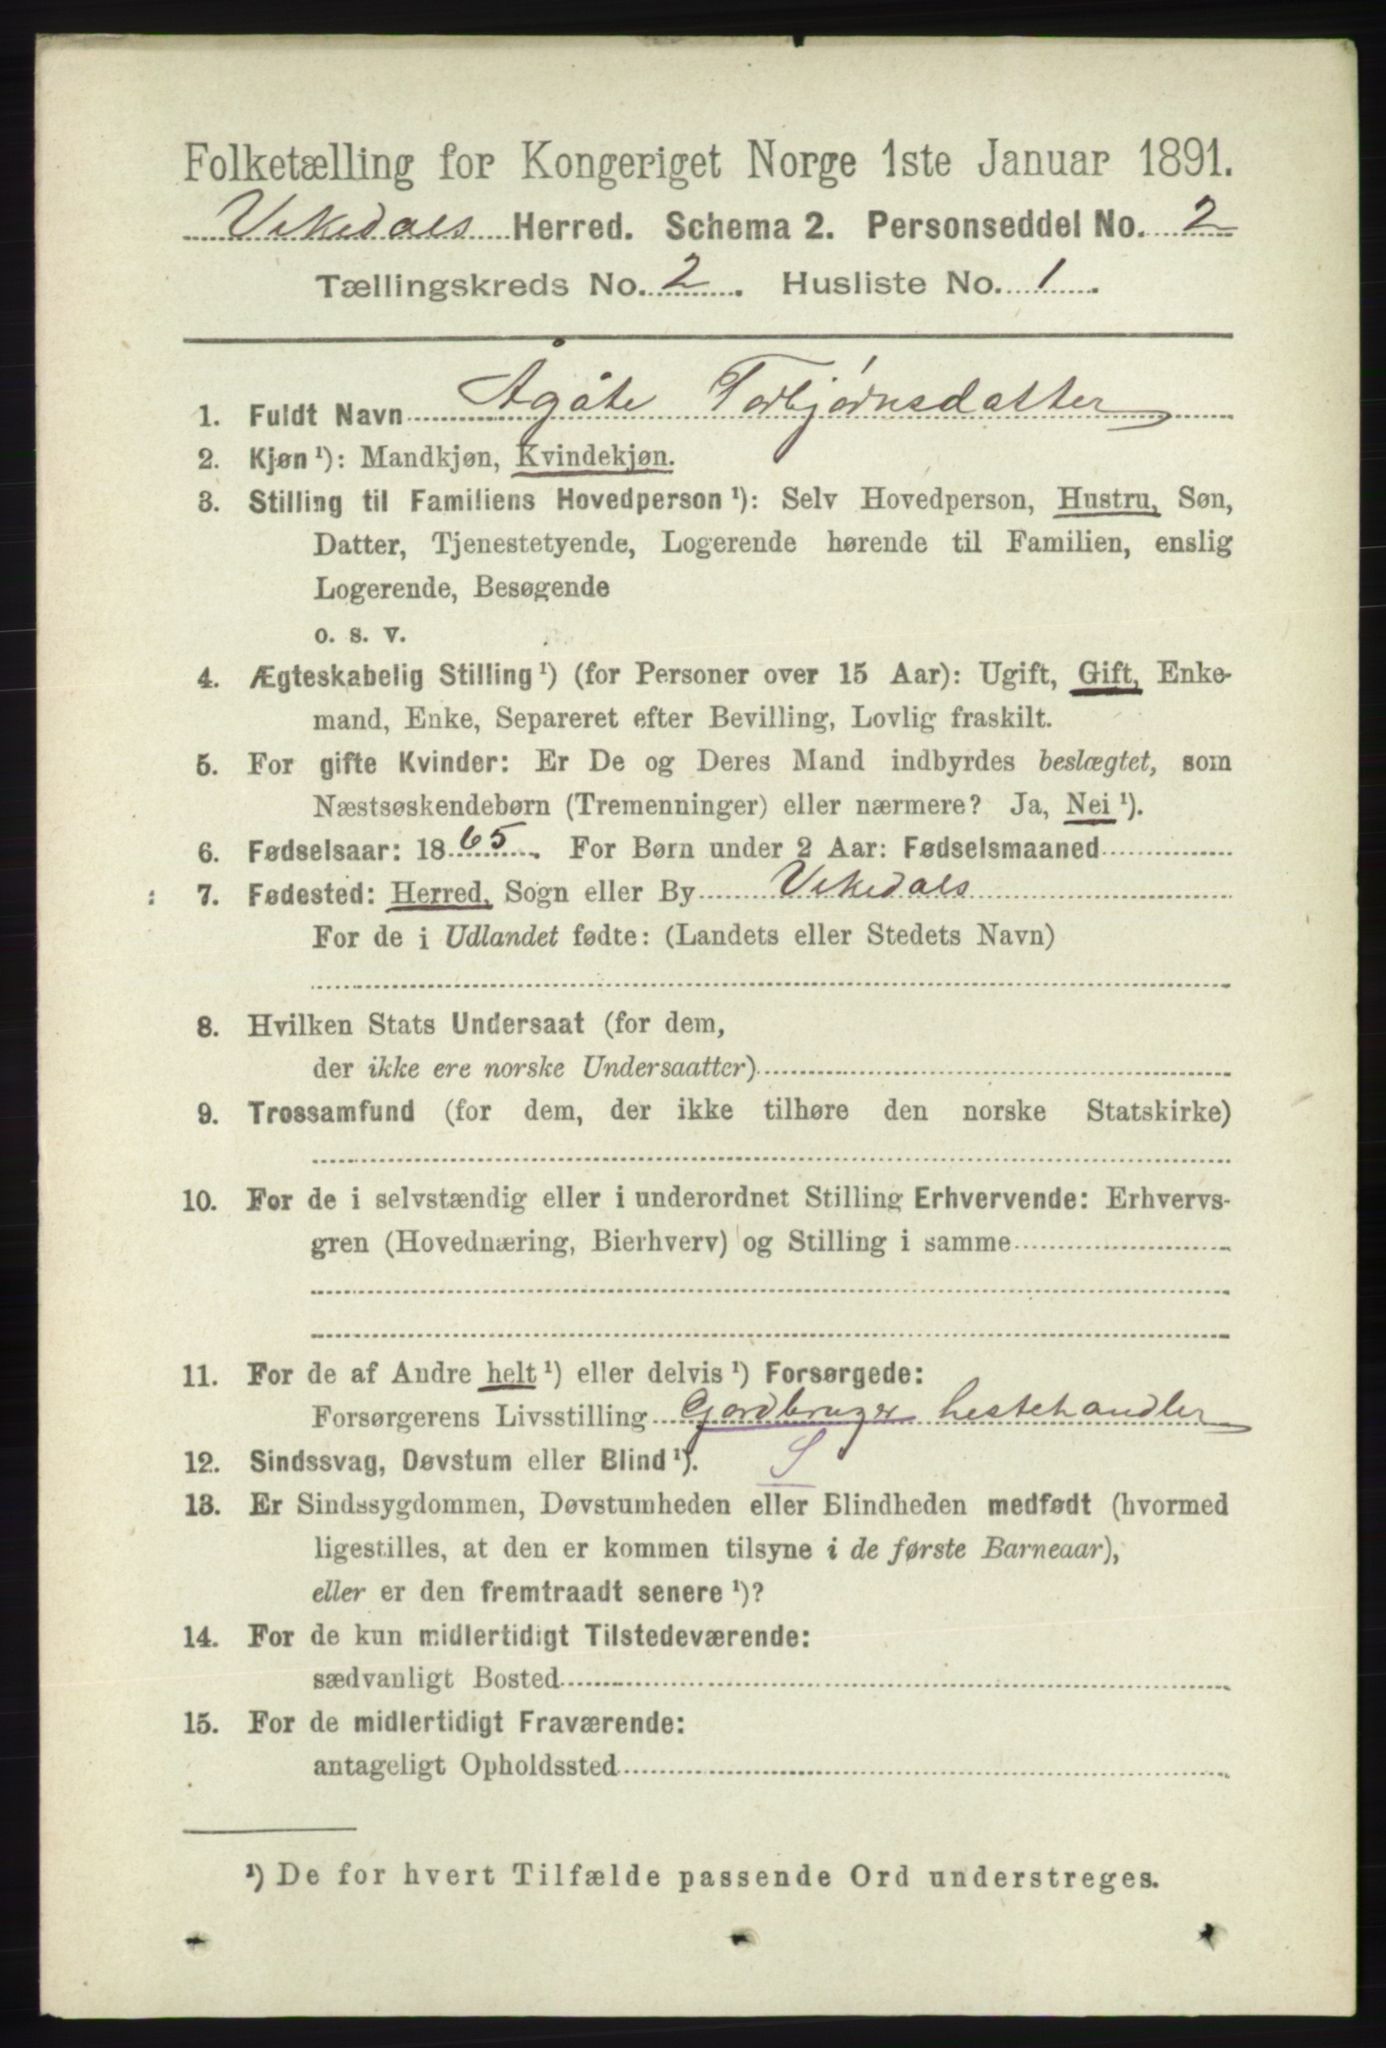 Folketælling for Kongeriget Norge 1ste Januar 1891.
Vikedals Herred. Schema 2. Personseddel No. 2
Tællingskreds No. 2. Husliste No. 1.
1. Fuldt Navn Ågåte Torbjørnsdatter
2. Kjøn ¹): Mandkjøn, Kvindekjøn.
3. Stilling til Familiens Hovedperson ¹): Selv Hovedperson, Hustru, Søn,
Datter, Tjenestetyende, Logerende hørende til Familien, enslig
Logerende, Besøgende
o. s. v.
4. Ægteskabelig Stilling ¹) (for Personer over 15 Aar): Ugift, Gift, Enke-
mand, Enke, Separeret efter Bevilling, Lovlig fraskilt.
5. For gifte Kvinder: Er De og Deres Mand indbyrdes beslægtet, som
Næstsøskendebørn (Tremenninger) eller nærmere? Ja, Nei ¹).
6. Fødselsaar: 1865. For Børn under 2 Aar: Fødselsmaaned
7. Fødested: Herred, Sogn eller By Vikedals
For de i Udlandet fødte: (Landets eller Stedets Navn)
8. Hvilken Stats Undersaat (for dem,
der ikke ere norske Undersaatter)
9. Trossamfund (for dem, der ikke tilhøre den norske Statskirke)
10. For de i selvstændig eller i underordnet Stilling Erhvervende: Erhvervs-
gren (Hovednæring, Bierhverv) og Stilling i samme
11. For de af Andre helt ¹) eller delvis ¹) Forsørgede:
Forsørgerens Livsstilling Gordbruger hestehandler
12. Sindssvag, Døvstum eller Blind ¹). S
13. Er Sindssygdommen, Døvstumheden eller Blindheden medfødt (hvormed
ligestilles, at den er kommen tilsyne i de første Barneaar),
eller er den fremtraadt senere ¹)?
14. For de kun midlertidigt Tilstedeværende:
sædvanligt Bosted
15. For de midlertidigt Fraværende:
antageligt Opholdssted
¹) De for hvert Tilfælde passende Ord understreges.